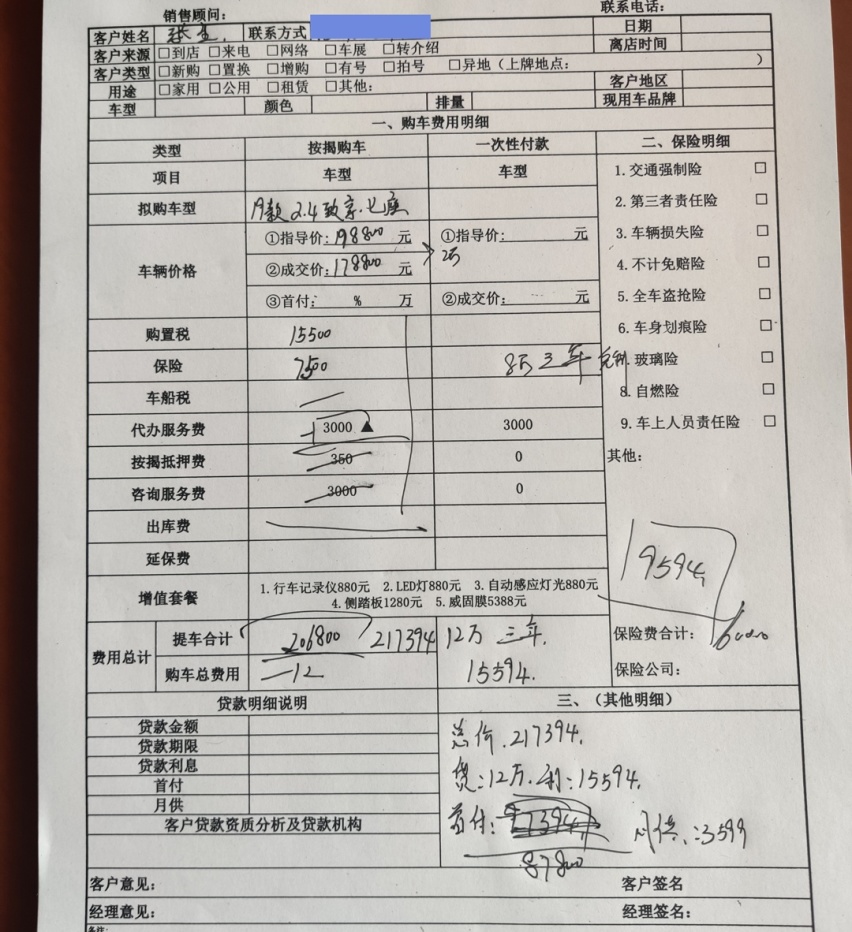 销售顾问： 联系电话：
客户姓名 联系方式 日期
客户来源 □到店 □来电 □网络 □车展 □转介绍 离店时间
客户类型 □新购 □置换 □增购 □有号 □拍号 □异地（上牌地点： ）
用途 □家用 □公用 □租赁 □其他： 客户地区
车型 颜色 排量 现用车品牌
一、购车费用明细
类型 按揭购车 一次性付款 二、保险明细
项目 车型 车型 1.交通强制险 □
拟购车型 19款 2.4 致享.七座 2.第三者责任险 □
车辆价格 ①指导价：198800 元 ①指导价： 元 3.车辆损失险 □
②成交价：178800 元 2万 4.不计免赔险 □
③首付： % 万 ②成交价： 元 5.全车盗抢险 □
购置税 15500 6.车身划痕险 □
保险 7500 8万三年 玻璃险 □
车船税 8.自燃险 □
代办服务费 3000 ▲ 3000 9.车上人员责任险 □
按揭抵押费 350 0 其他：
咨询服务费 3000 0
出库费
延保费
19594
增值套餐 1.行车记录仪880元 2.LED灯880元 3.自动感应灯光880元
4.侧踏板1280元 5.威固膜5388元
费用总计 提车合计 206800 217394 12万 三年. 保险费合计：
购车总费用 -12 15594. 保险公司：
贷款明细说明 三、（其他明细）
贷款金额 总价.217394.
贷款期限
贷款利息 贷：12万.利：15594.
首付
月供 首付： 月供：3599
客户贷款资质分析及贷款机构
87800
客户意见： 客户签名
经理意见： 经理签名：
备注：